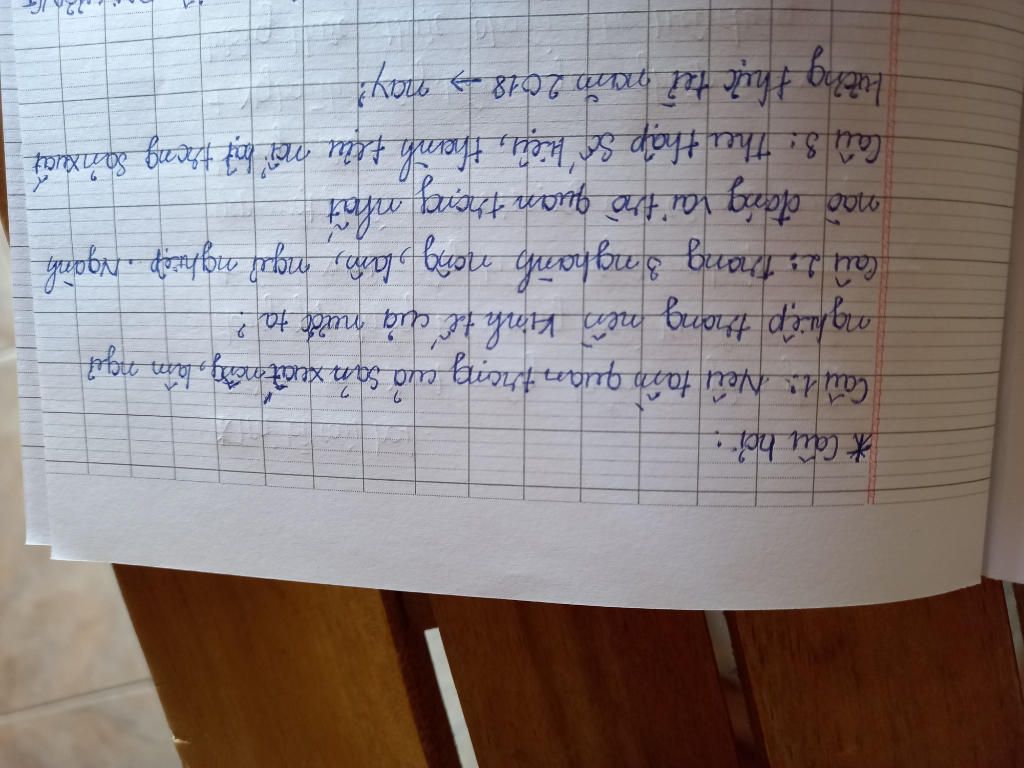 * Câu hỏi:
Câu 1: Nêu tầm quan trọng của sản xuất nông, lâm ngư
nghiệp trong nền kinh tế của nước ta?
Câu 2: Trong 3 nghành nông, lâm, ngư nghiệp. Ngành
nào đóng vai trò quan trọng nhất
Câu 3: Thu thập số liệu, thành tựu nổi bật trong sản xuất
lương thực từ năm 2018 → nay?